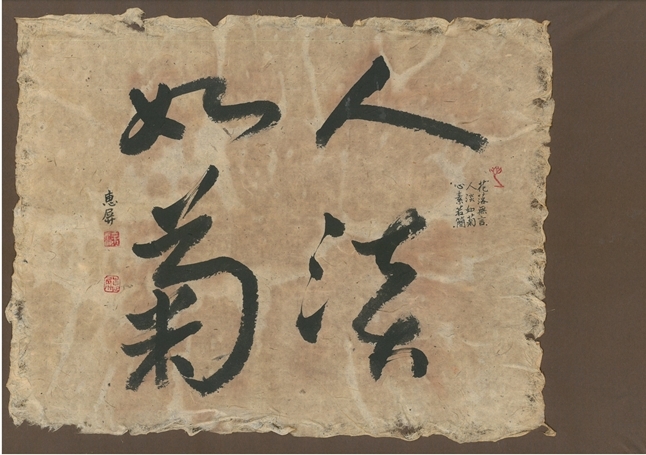 花落無言
人淡如菊
心素若簡
人淡
如菊
惠屏